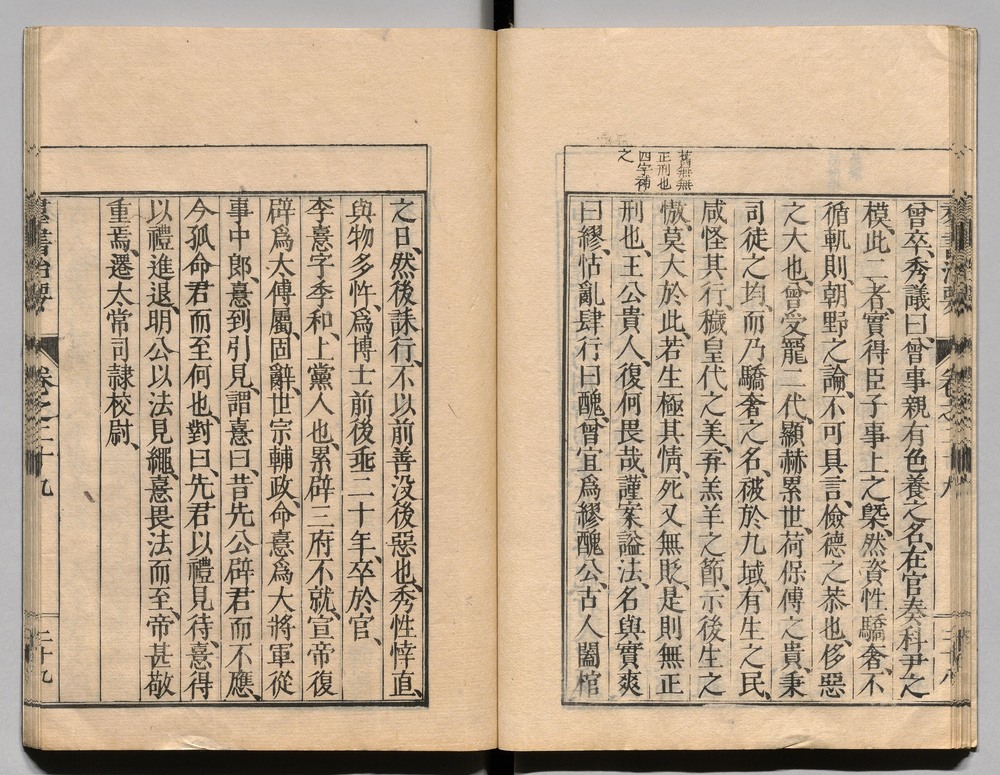 舊無無
正刑也
四字補
之
曾卒、秀議曰、曾事親有色養之名、在官奏科尹之
模、此二者、實得臣子事上之槩、然資性驕奢、不
循軌則、朝野之論、不可具言、儉德之恭也、侈惡
之大也、曾受寵二代、顯赫累世、荷保傅之貴、秉
司徒之均、而乃驕奢之名、被於九域、有生之民、
咸怪其行、穢皇代之美、弃羔羊之節、示後生之
慠、莫大於此、若生極其情、死又無貶、是則無正
刑也、王公貴人、復何畏哉、謹案謚法、名與實爽
曰繆、怙亂肆行曰醜、曾宜爲繆醜公、古人闔棺
之日、然後誄行、不以前善没後惡也、秀性悻直、
與物多忤、爲博士前後垂二十年、卒於官、
李憙字季和、上黨人也、累辟三府不就、宣帝復
辟爲太傅屬、固辭、世宗輔政、命憙爲大將軍從
事中郎、憙到引見、謂憙曰、昔先公辟君而不應、
今孤命君而至何也、對曰、先君以禮見待、憙得
以禮進退、明公以法見繩、憙畏法而至、帝甚敬
重焉、遷太常司隷校尉、
羣書治要
卷之二十九
二十九